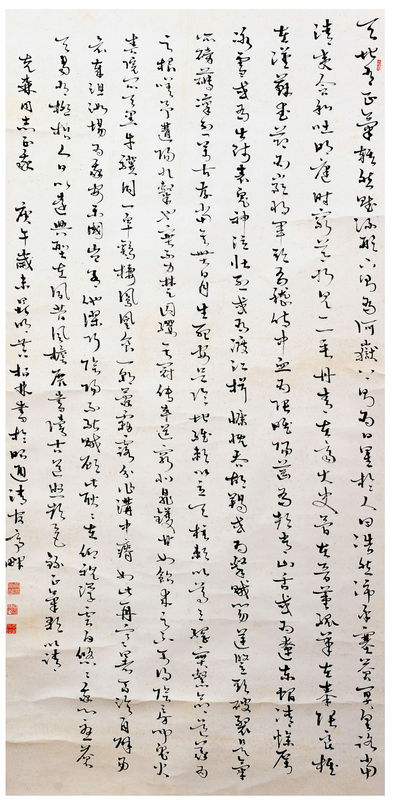 天地有正氣雜然賦流形下則為河嶽上則為日星於人曰浩然沛乎塞蒼冥皇路當
清夷含和吐明庭時窮節乃見一一垂丹青在齊太史簡在晉董狐筆在秦張良椎
在漢蘇武節為嚴將軍頭為嵇侍中血為張睢陽齒為顏常山舌或為遼東帽清操厲
冰雪或為出師表鬼神泣壯烈或為渡江楫慷慨吞胡羯或為擊賊笏逆豎頭破裂是氣
所磅礴凜烈萬古存當其貫日月生死安足論地維賴以立天柱賴以尊三綱實係命道義為
之根嗟予遘陽九隸也實不力楚囚纓其冠傳車送窮北鼎鑊甘如飴求之不可得陰房闃鬼火
春院閟天黑牛驥同一皁雞棲鳳凰食一朝蒙霧露分作溝中瘠如此再寒暑百沴自辟易
哀哉沮洳場為我安樂國豈有他繆巧陰陽不能賊顧此耿耿在仰視浮雲白悠悠我心悲蒼
天曷有極哲人日以遠典型在夙昔風簷展書讀古道照顏色 錄正氣歌以請
克森同志正 庚午歲末 松林書於昭通清官亭畔